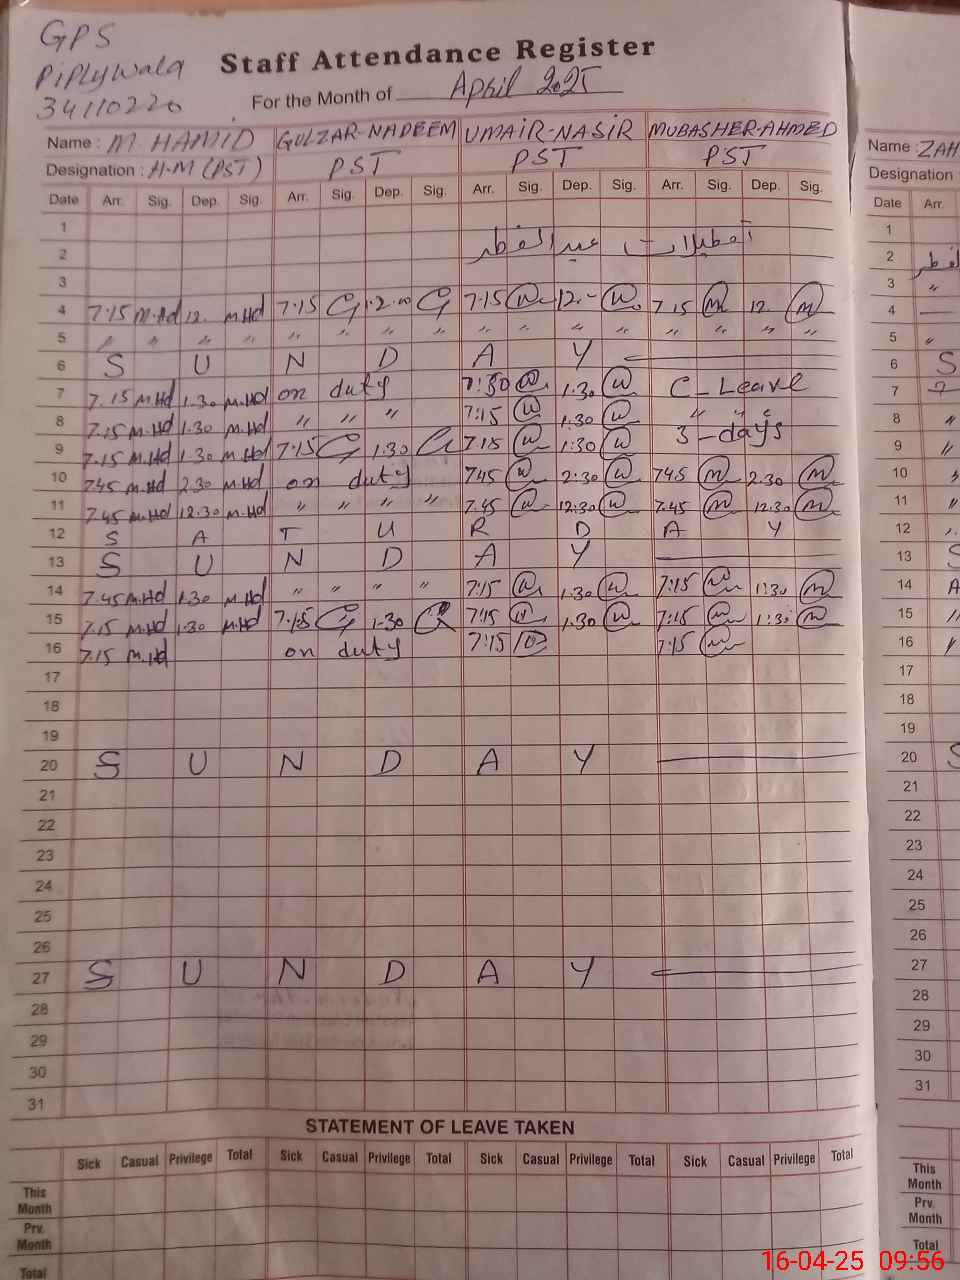 GPS
PiplyWala
34110220
Staff Attendance Register
For the Month of April 2025
Name : M HAMID GULZAR-NADEEM UMAIR-NASIR MUBASHER-AHMED
Designation : H-M (PST) PST PST PST
Date Arr. Sig. Dep. Sig. Arr. Sig. Dep. Sig. Arr. Sig. Dep. Sig. Arr. Sig. Dep. Sig.
1
2 تعطیلات عیدالفطر
3
4 7.15 M.Hd 12. M.Hd 7.15 G 12.00 G 7.15 12.- 7.15 m 12. m
5 " " " " " " " " " " " " " " " "
6 S U N D A Y
7 7.15 M.Hd 1.30 M.Hd on duty 7:30 1.30 C-Leave
8 7.15 M.Hd 1.30 M.Hd " " " 7:15 1.30 " " "
9 7.15 M.Hd 1.30 M.Hd 7.15 G 1.30 G 7.15 1:30 3-days
10 7.45 M.Hd 2.30 M.Hd on duty 7.45 2:30 7.45 m 2.30 m
11 7.45 M.Hd 12.30 M.Hd " " " " 7.45 12:30 7.45 m 12.30 m
12 S A T U R D A Y
13 S U N D A Y
14 7.45 M.Hd 1.30 M.Hd " " " " 7:15 1.30 7:15 m 1:30 m
15 7.15 M.Hd 1.30 M.Hd 7.15 G 1.30 G 7:15 1.30 7:15 m 1:30 m
16 7.15 M.Hd on duty 7:15 7:15 m
17
18
19
20 S U N D A Y
21
22
23
24
25
26
27 S U N D A Y
28
29
30
31
STATEMENT OF LEAVE TAKEN
Sick Casual Privilege Total Sick Casual Privilege Total Sick Casual Privilege Total Sick Casual Privilege Total
This Month
Prv. Month
Total
Name : ZAH
Designation
Date Arr.
1
2
3 "
4
5 "
6 S
7
8 "
9 "
10
11 "
12
13 S
14 A
15 "
16
17
18
19
20 S
21
22
23
24
25
26
27
28
29
30
31
This Month
Prv. Month
Total
16-04-25 09:56